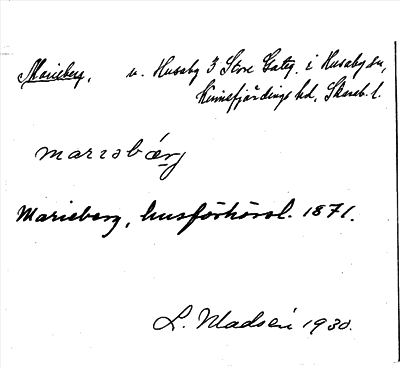 Marieberg, u. Husaby 3 Stora Gatg. i Husaby sn,
Kinnefjärdings hd, Skarab. l.
marıəbærj
Marieberg, husförhörsl. 1871.
L. Madsén 1930.